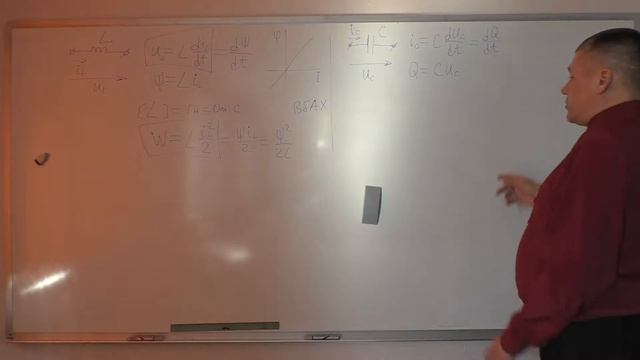 L
i_L
u_L
u_L = L di_L/dt = dΨ/dt
Ψ = L i_L
Ψ
I
[L] = Гн = Ом·с
ВбАХ
W = L i_L²/2 = Ψ i_L/2 = Ψ²/2L
i_C
C
u_C
i_C = C du_C/dt = dQ/dt
Q = C u_C